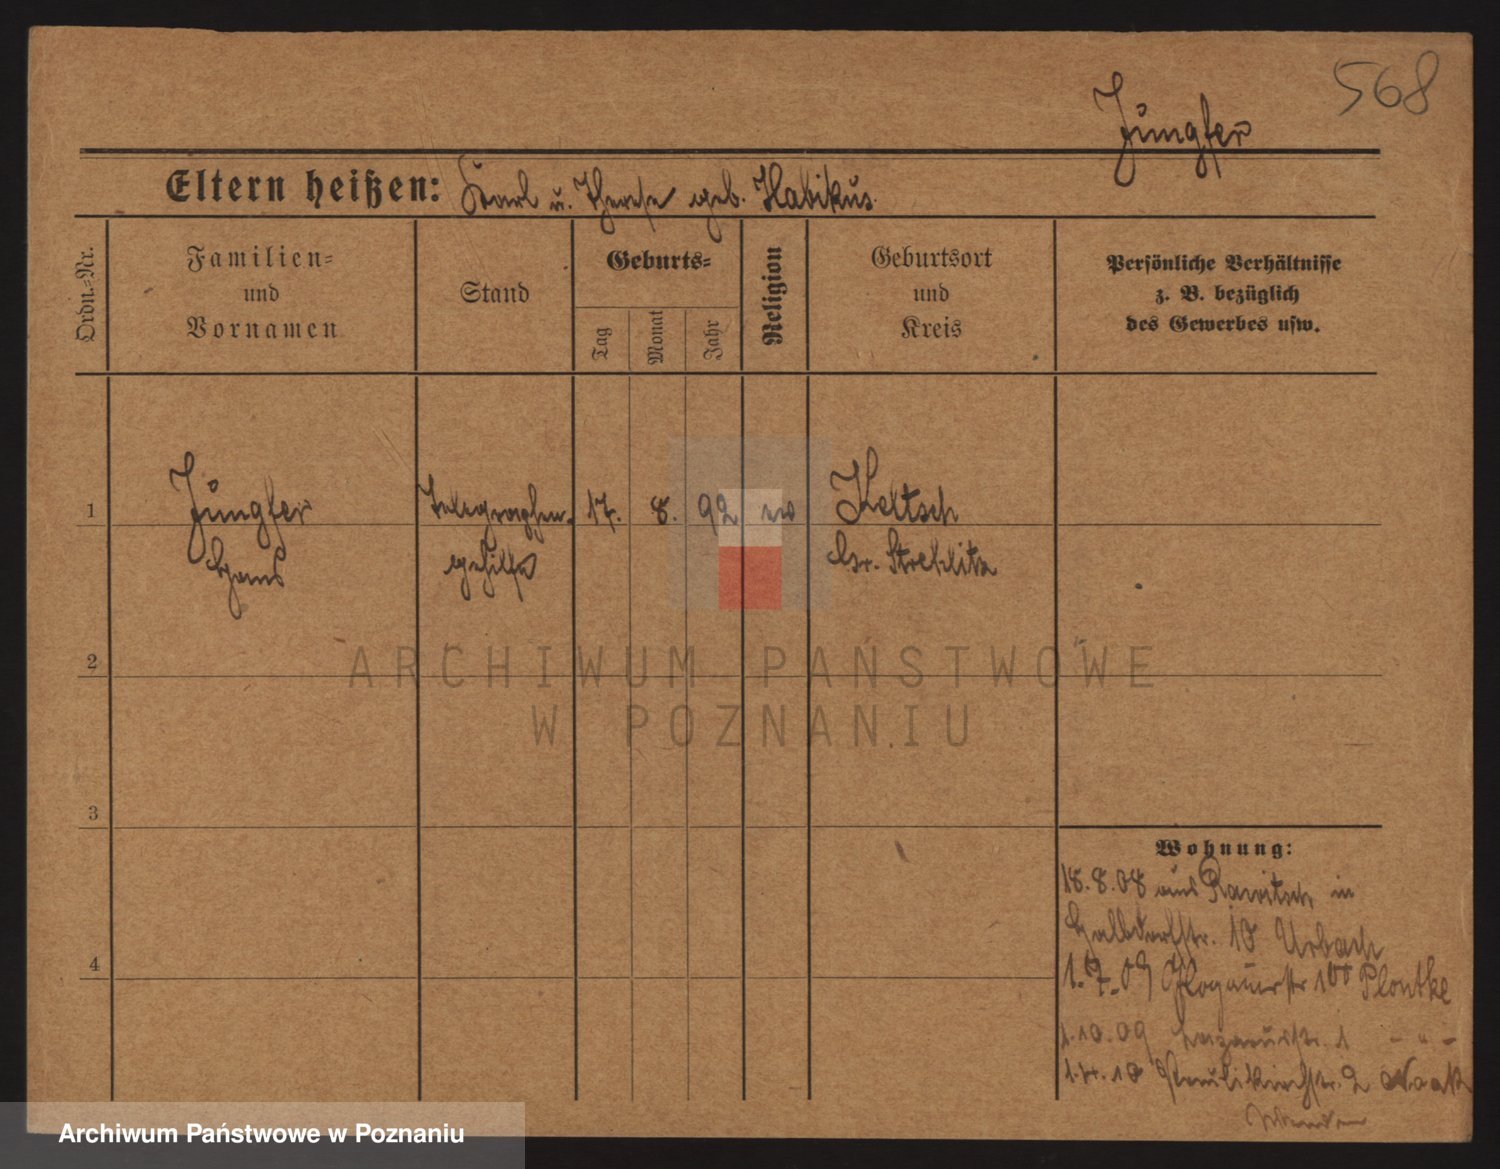 568
Jüngfer
Eltern heißen: Karl u. Therese geb. Habikus.
Ordn.=Nr.
Familien=
und
Vornamen
Stand
Geburts=
Tag
Monat
Jahr
Religion
Geburtsort
und
Kreis
Persönliche Verhältnisse
z. B. bezüglich
des Gewerbes usw.
1
Jüngfer
Hans
Telegraphen-
gehilfe
17. 8. 92
Keltsch
Gr. Strehlitz
2
ARCHIWUM PAŃSTWOWE
W POZNANIU
3
Wohnung:
18.8.08 aus Rawitsch in
Halbdorfstr. 10 Urbach
4
1.7.09 Glogauerstr 100 Plontke
1.10.09 1 - " -
1.4.10 Paulikirchstr. 2 Noak
Archiwum Państwowe w Poznaniu